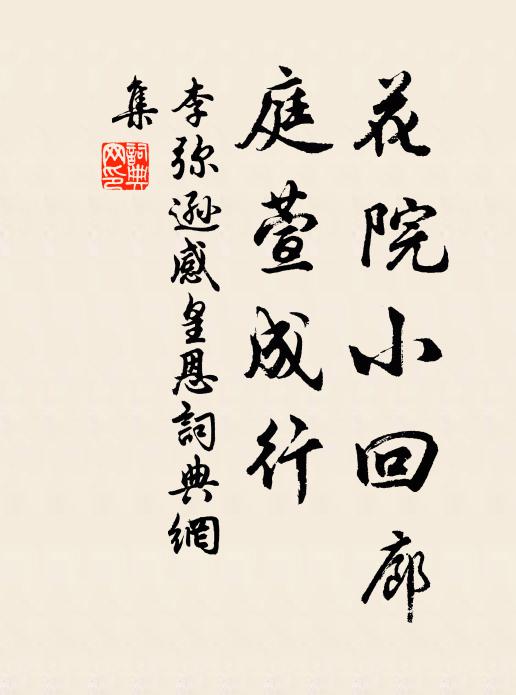 花院小回廊
庭萱成行
李弥遜感皇恩詞典網
集
詞典
网印